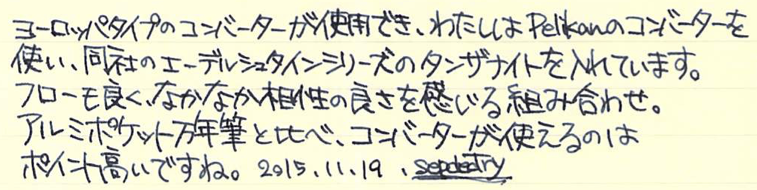 ヨーロッパタイプのコンバーターが使用でき、わたしはPelikanのコンバーターを
使い、同社のエーデルシュタインシリーズのタンザナイトを入れています。
フローも良く、なかなか相性の良さを感じる組み合わせ。
アルミポケット万年筆と比べ、コンバーターが使えるのは
ポイント高いですね。2015.11.19、